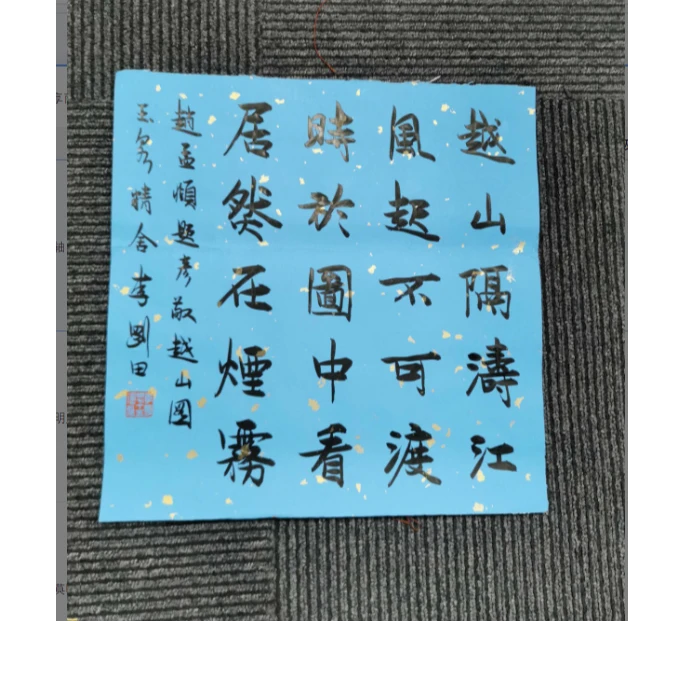 越山隔濤江
風起不可渡
時於圖中看
居然在煙霧
趙孟頫題彥敬越山圖
玉泉精舍李劉田